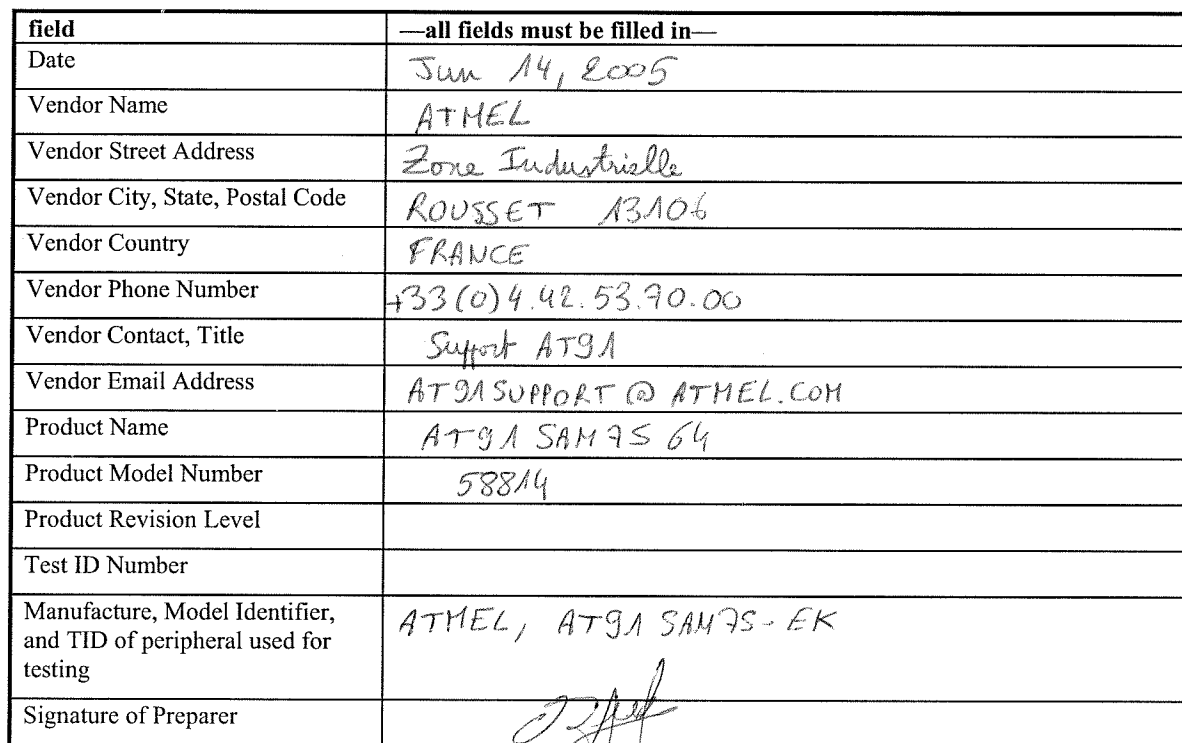 field —all fields must be filled in—
Date Jun 14, 2005
Vendor Name ATMEL
Vendor Street Address Zone Industrielle
Vendor City, State, Postal Code ROUSSET 13106
Vendor Country FRANCE
Vendor Phone Number +33(0)4.42.53.70.00
Vendor Contact, Title Support AT91
Vendor Email Address AT91SUPPORT@ATMEL.COM
Product Name AT91SAM7S64
Product Model Number 58814
Product Revision Level
Test ID Number
Manufacture, Model Identifier, ATMEL, AT91SAM7S-EK
and TID of peripheral used for
testing
Signature of Preparer